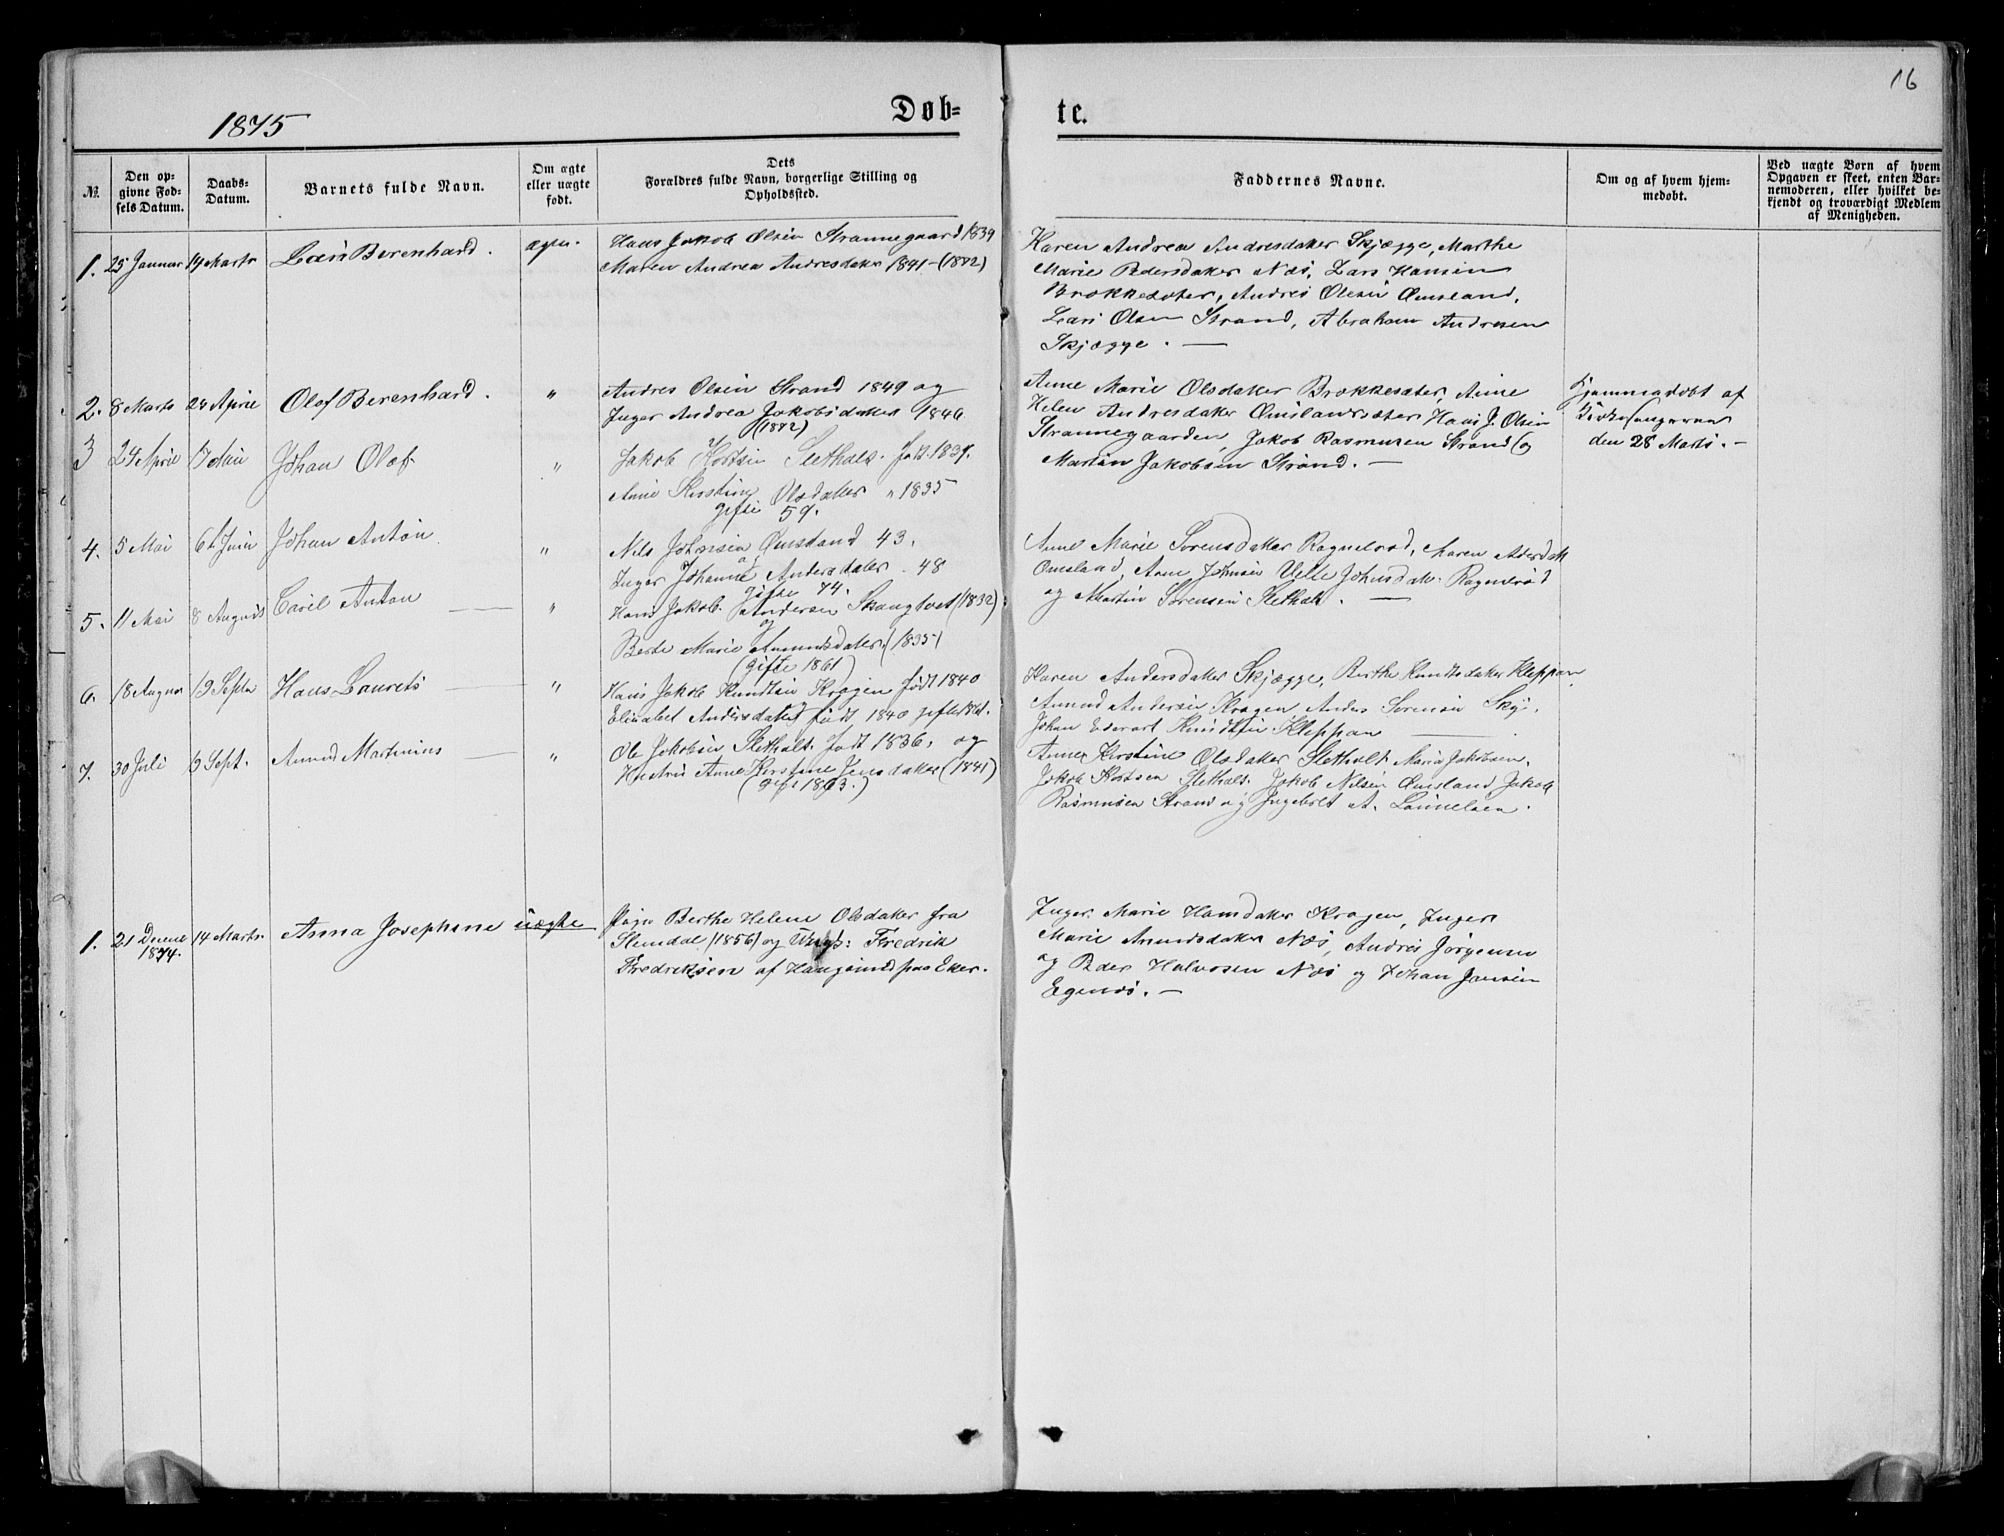 16
1875
Døb=
te.
№.
Den op-
givne Fød-
sels Datum.
Daabs-
Datum.
Barnets fulde Navn.
Om ægte
eller uægte
født.
Dets
Forældres fulde Navn, borgerlige Stilling og
Opholdssted.
Faddernes Navne.
Om og af hvem hjem-
medøbt.
Ved uægte Børn af hvem
Opgaven er skeet, enten Bar-
nemoderen, eller hvilket be-
kjendt og troværdigt Medlem
af Menigheden.
1. 25 Januar 14 Marts Lars Berenhard.
Hans Jakob Olsen Strannegaard 1839
Maren Andrea Andresdater 1841 - (1872)
Karen Andrea Andresdater Skjægge, Marthe
Marie Pedersdater Næs, Lars Hansen
Brækkesæter, Andres Olsen Omsland,
Lars Olsen Strand, Abraham Andresen
Skjægge. —
2. 8 Marts 24 April Olof Berenhard. "
Andres Olsen Strand 1849 og
Inger Andrea Jakobsdater 1846
(1872)
Anne Marie Olsdater Brækkesæter, Anne
Helen Andresdater Omslandsæter, Hans J. Olsen
Strannegaarden, Jakob Rasmusen Strand og
Martin Jakobsen Strand. —
Hjemmedøbt af
Kirkesangeren
den 28 Marts. -
3 24 April 17 Mai Johan Olaf "
Jakob Kortsen Slethalt. født 1837.
Anne Kirstine Olsdater " 1835
gifte 59.
4. 5 Mai 6te Juni Johan Anton "
Nils Johnsen Omsland 43.
og
Inger Johanne Andersdater . 48
gifte 74.
Anne Marie Sørensdater Ragnelrød, Maren
Omsland, Johnsen Johnsdater Ragnelrød
og Martin Sørensen Slethalt. —
5. 11 Mai 8 August Caril Anton — "
Hans Jakob Andersen (1832)
og
Berte Marie Amundsdater (1835)
(gifte 1861)
6. 18 August 19 Septbr Hans Laurets — "
Hans Jakob Knudtsen Kragen født 1840
Elisabet Andersdater født 1840 gifte
Karen Andersdater Skjægge, Berthe Knudtsdater Kleppan,
Amund Andersen Kragen Anders Sørensen
Johan Edvart Knudtsen Kleppan —
7. 30 Juli 19 Sept. Amund Martinius — "
Ole Jakobsen Slethalt. født 1836. og
Hustru Anne Kirstine Jensdater (1841)
(gift 1863.)
Anne Kirstine Olsdater Slethalt Maria Jakobsen,
Jakob Kortsen Slethalt. Jakob Nilsen Omsland Jakob
Rasmusen Strand og Ingebret A.
1. 21 Decembr
1874. 14 Marts. Anna Josephine uægte
Pige Berthe Helene Olsdater fra
Stemdal (1856) og Ungk: Fredrik
Fredriksen af Haugsund paa Eker.
Inger Marie Hansdater Kragen, Inger
Marie Amundsdater Næs, Andres Jørgensen
og Peder Halvorsen Næs og Johan Jansen
Egenæs. —